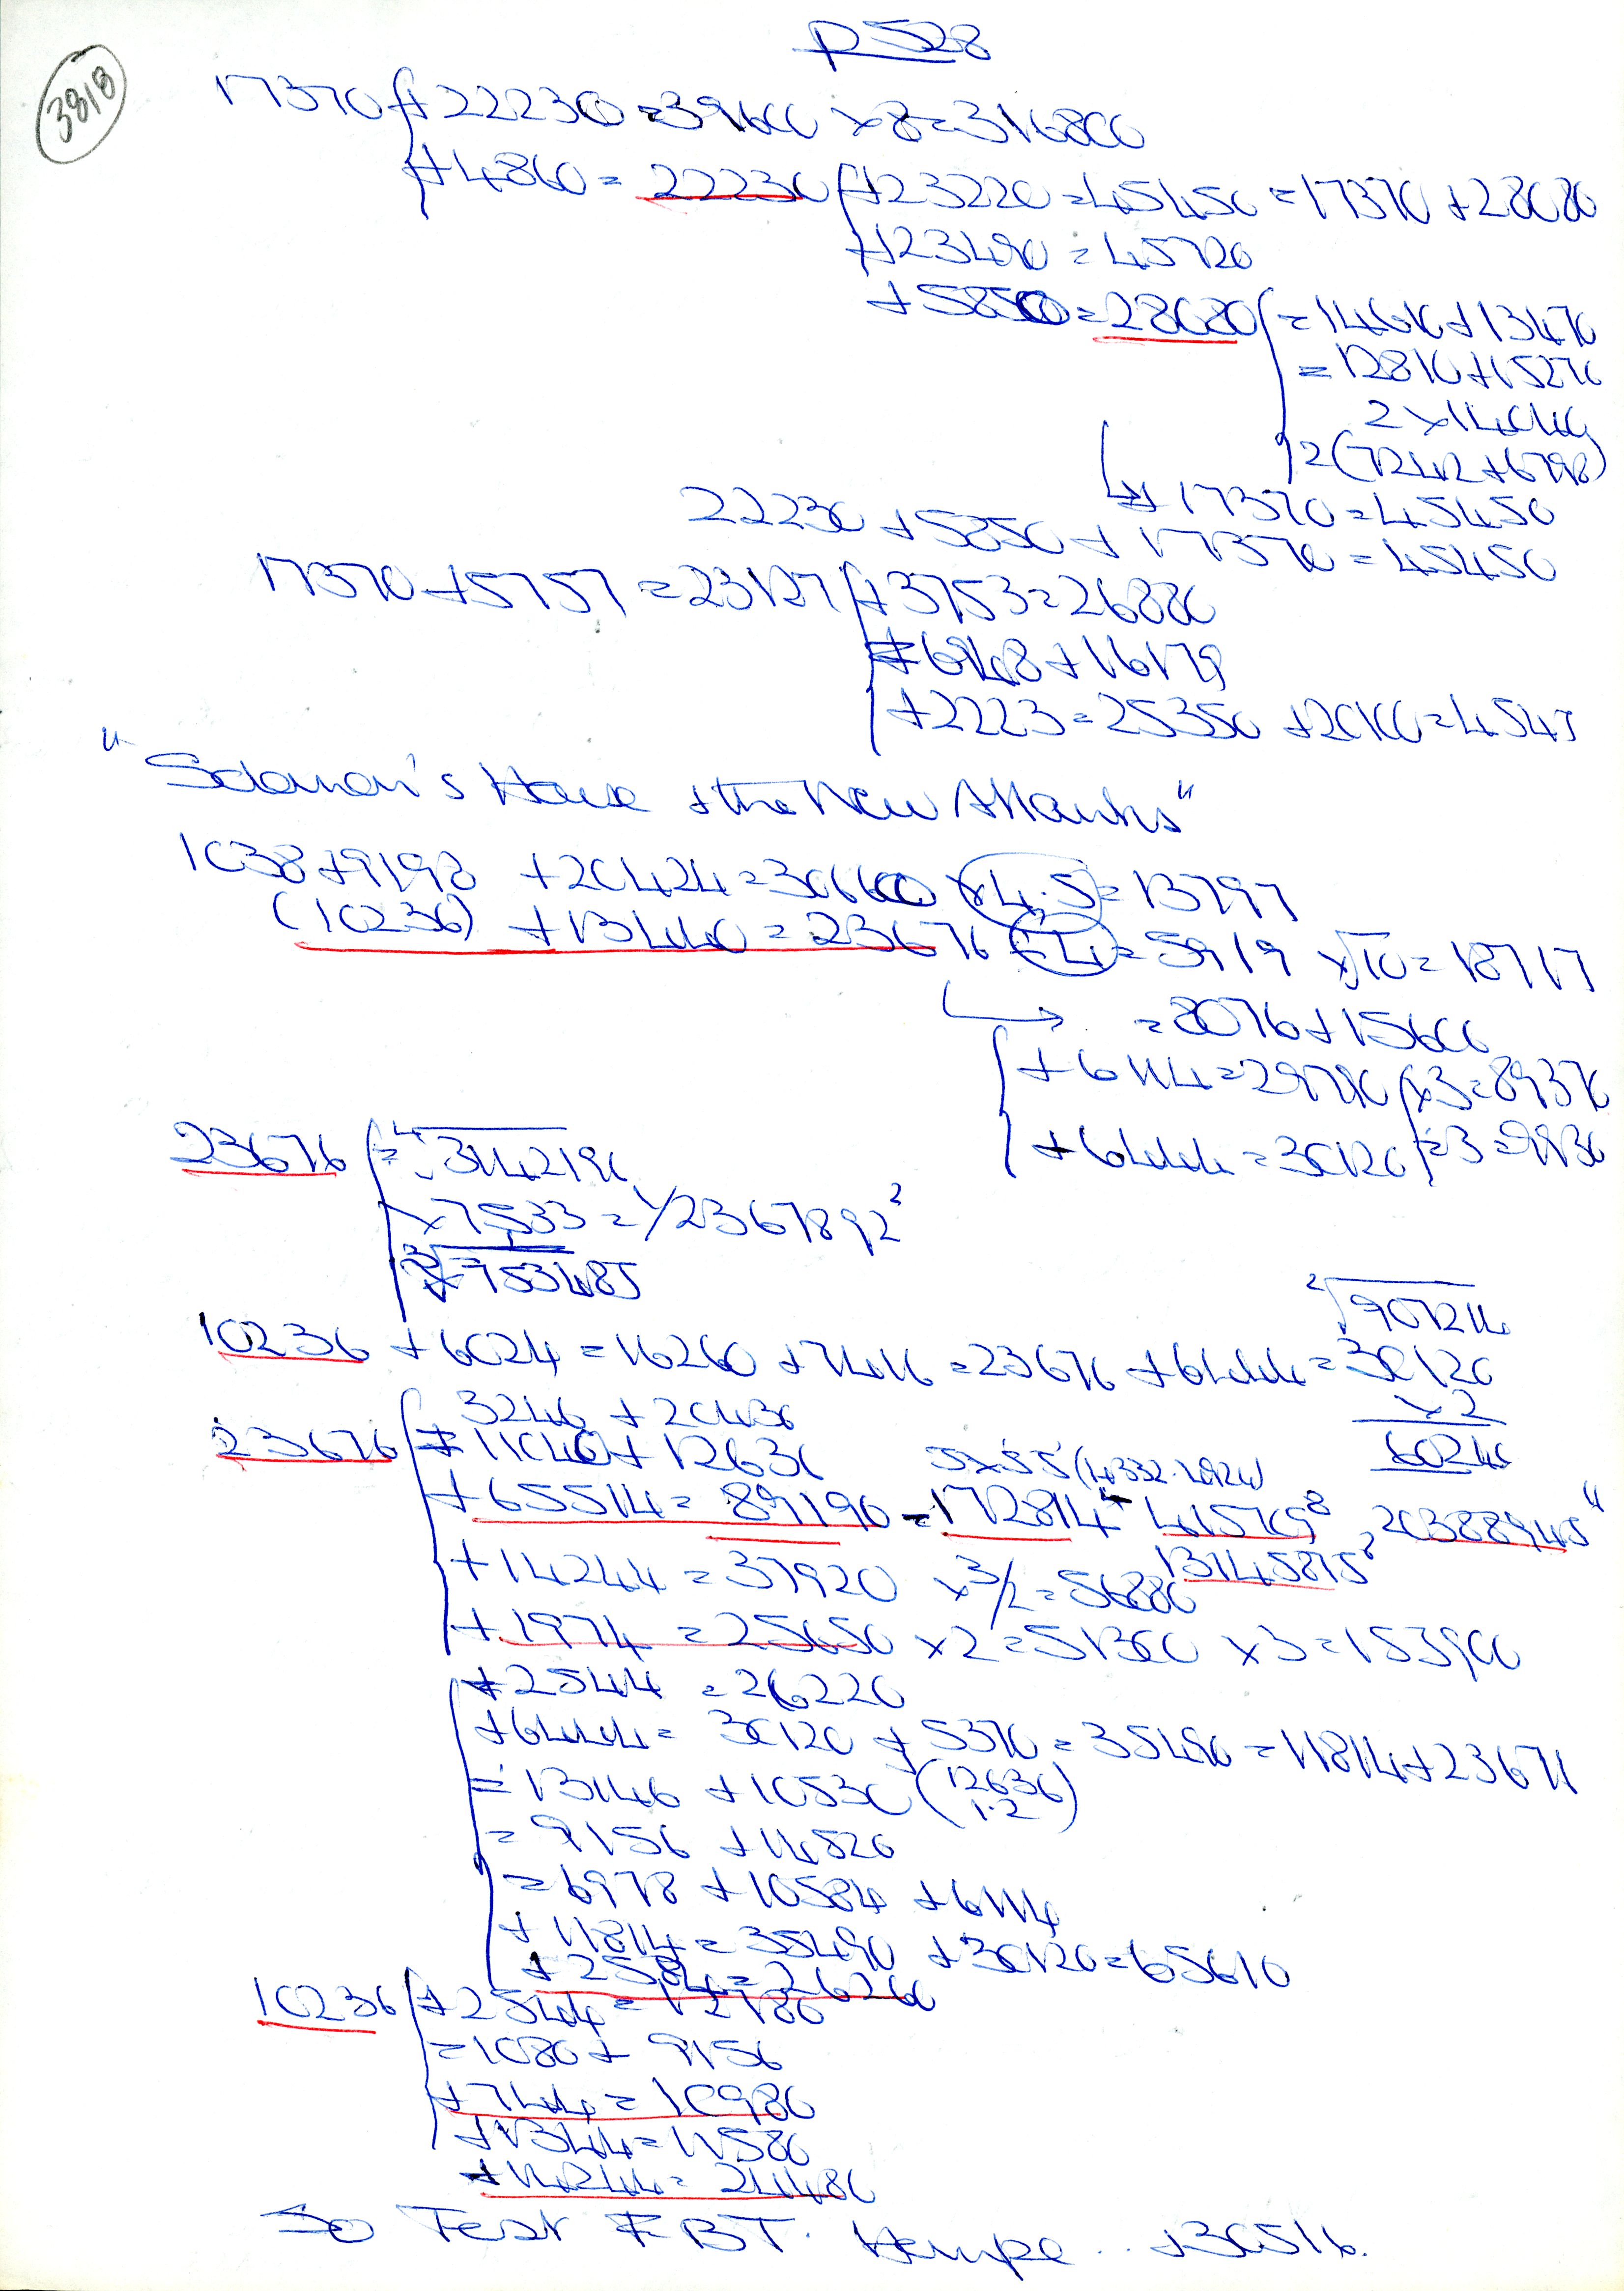 p528
3818
17370 + 22230 = 39600 x 8 = 316800
+ 4860 = 22230 + 23220 = 45450 = 17370 + 28080
+ 23490 = 45720
+ 5850 = 28080 = 14610 + 13470
= 12810 + 15270
2 x 14040
2(7242 + 6798)
+ 17370 = 45450
22230 + 5850 + 17370 = 45450
17370 + 5757 = 23127 + 3753 = 26880
= 6948 + 16179
+ 2223 = 25350 + 20100 = 4545
"Solomon's House & the New Atlantis"
1038 + 9198 + 20424 = 30660 x 4.5 = 13797
(10236) + 13440 = 23676 ÷ 4 = 5919 x √10 = 18717
= 8076 + 15600
+ 6114 = 29790 x 3 = 89370
+ 6444 = 30120 ÷ 3 = 9930
23676 = ⁴√3142190
x 7533 = 1/2367892²
³√753485
²√907214
10236 + 6024 = 16260 + 7416 = 23676 + 6444 = 30120
x 2
60240
3246 + 20430
23676 = 11040 + 12636
+ 65514 = 89190 = 172814⁴ 415769⁸, 20388945"
13145875²
+ 14244 = 37920 x 3/2 = 56880
+ 1974 = 25650 x 2 = 51300 x 3 = 153900
+ 2544 = 26220
+ 6444 = 30120 + 5370 = 35490 = 11814 + 23671
= 13146 + 10530 (12636 1.2)
= 9156 + 14520
= 6978 + 10584 + 6114
+ 11814 = 35490 + 30120 = 65610
+ 2584 = 26260
10236 + 2544 = 12780
= 1080 + 9156
+ 744 = 10980
+ 1344 = 11580
+ 14244 = 24480
So Test FBT. .. + 30516.